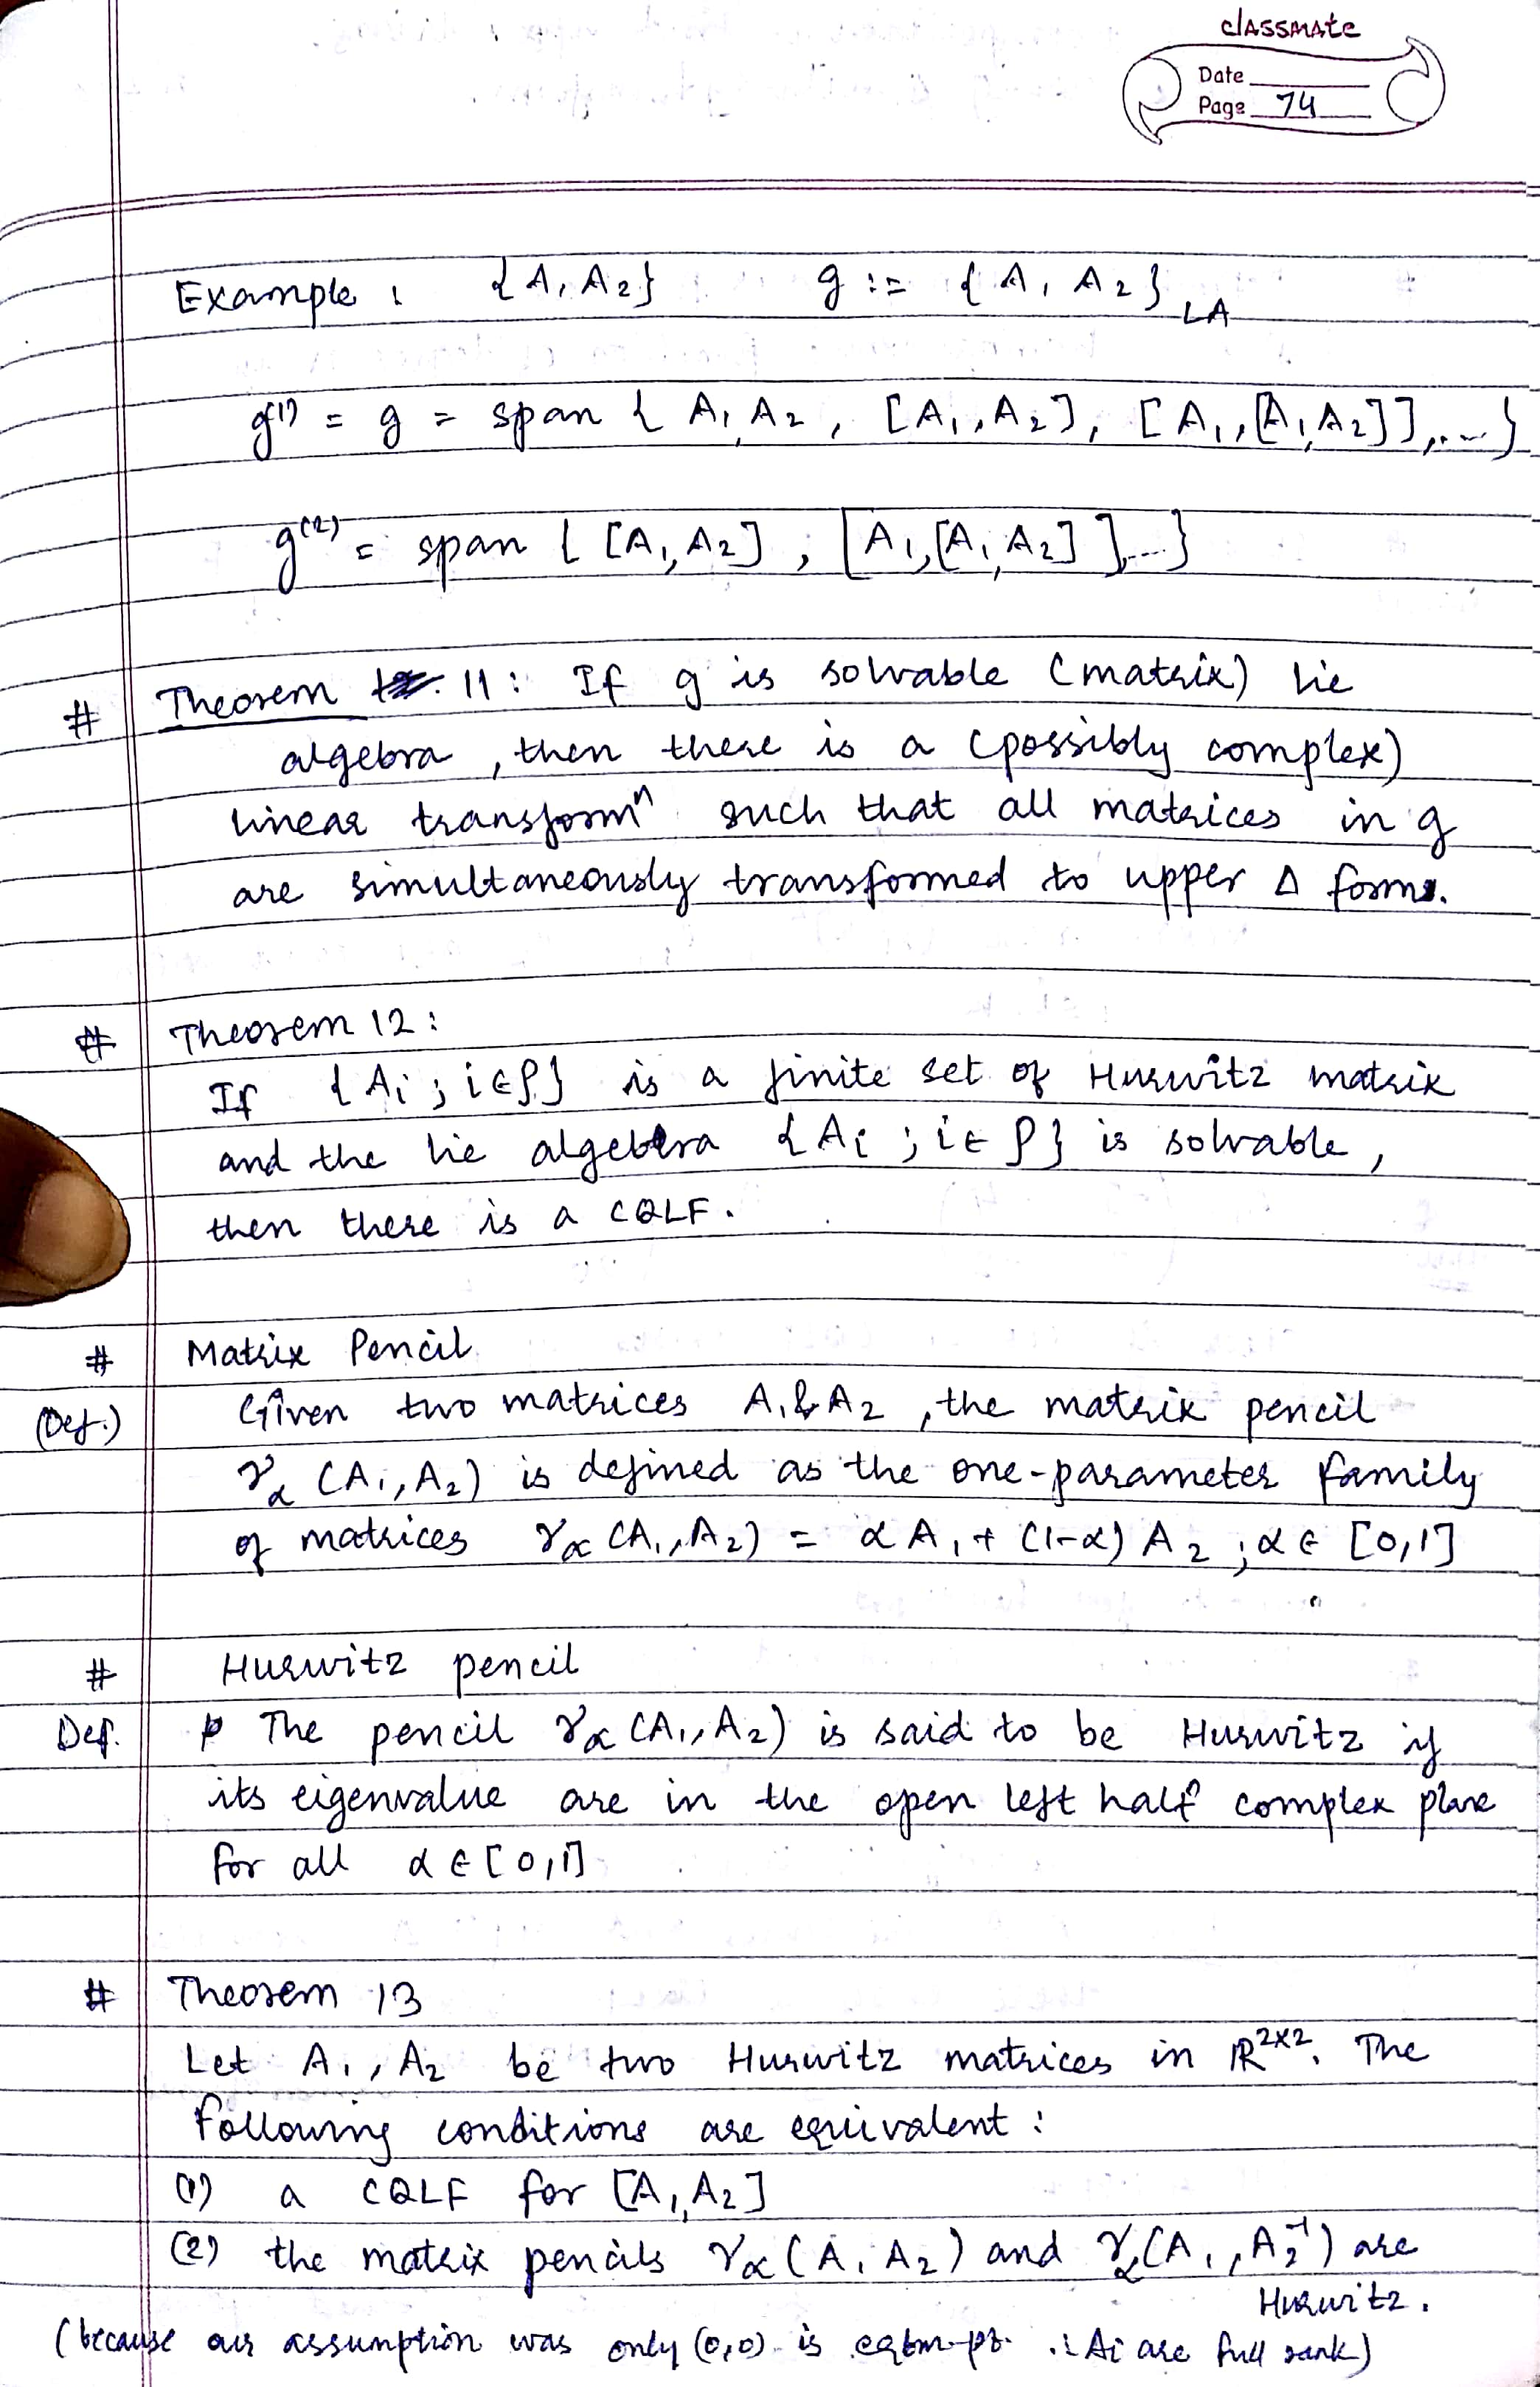 classmate
Date
Page 74
Example : {A1 A2} g := {A1 A2}LA
g(1) = g = span { A1, A2, [A1, A2], [A1, [A1, A2]], ... }
g(2) = span { [A1, A2], [A1, [A1, A2]] ... }
# Theorem 11: If g is solvable (matrix) lie
algebra, then there is a (possibly complex)
linear transformⁿ such that all matrices in g
are simultaneously transformed to upper Δ forms.
# Theorem 12:
If {Ai ; i ∈ P} is a finite set of Hurwitz matrix
and the lie algebra {Ai ; i ∈ P} is solvable,
then there is a CQLF.
# Matrix Pencil
(Def.) Given two matrices A1 & A2, the matrix pencil
γα (A1, A2) is defined as the one-parameter family
of matrices γα (A1, A2) = α A1 + (1-α) A2 ; α ∈ [0,1]
# Hurwitz pencil
Def. The pencil γα (A1, A2) is said to be Hurwitz if
its eigenvalue are in the open left half complex plane
for all α ∈ [0,1]
# Theorem 13
Let A1, A2 be two Hurwitz matrices in ℝ2x2. The
following conditions are equivalent :
(1) a CQLF for [A1, A2]
(2) the matrix pencils γα (A1 A2) and γα (A1, A2⁻¹) are
Hurwitz.
(because our assumption was only (0,0) is eqbm. pt. ∴ Ai are full rank)